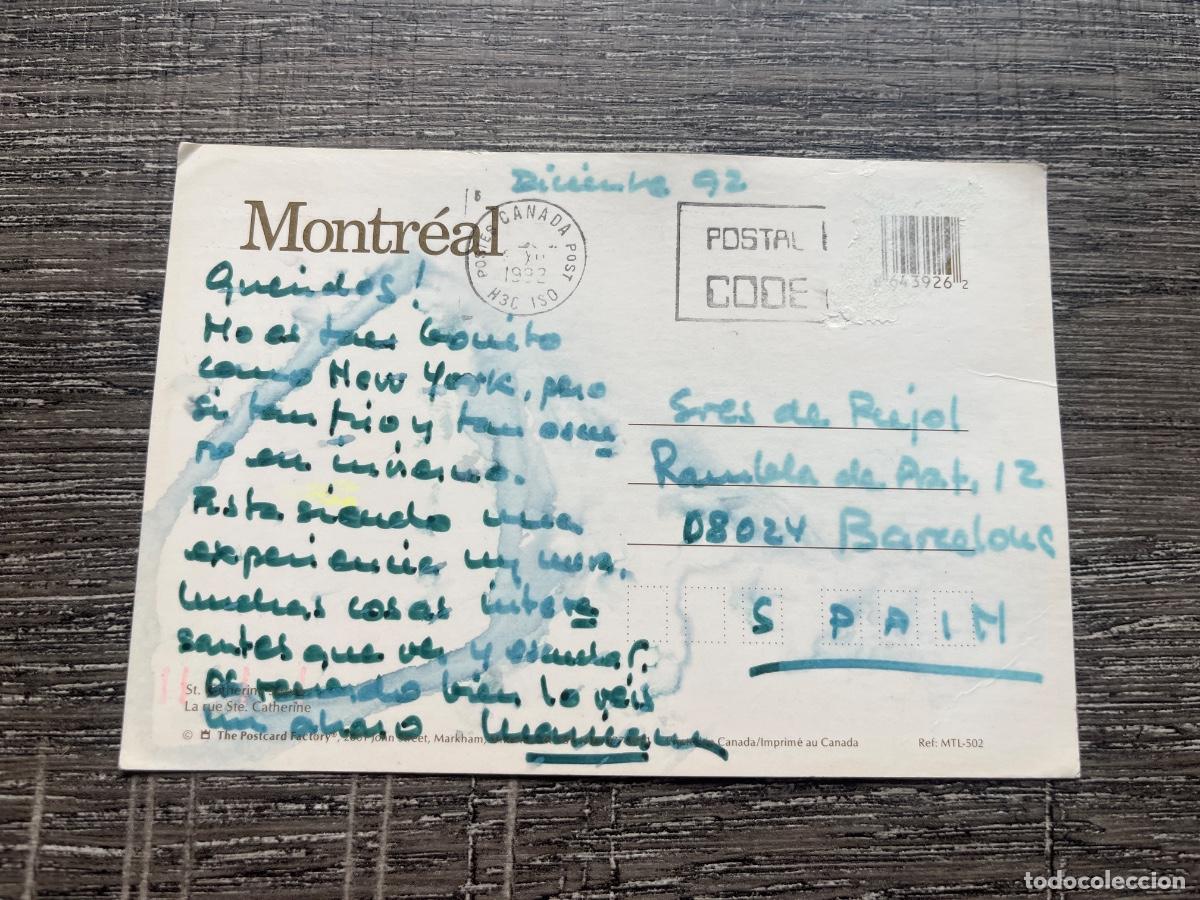 Diciembre 92
Montréal
POSTES CANADA POST
XII
1992
H3C 1S0
POSTAL
CODE
643926 2
Queridos!
No es tan bonito
como New York, pero
si tan frio y tan oscu
ro en invierno.
Esta siendo una
experiencia muy nueva.
Muchas cosas intere
santes que ver y escuchar.
El remando bien lo veis
Un abrazo Mariana
Sres de Pujol
Rambla de Prat, 12
08024 Barcelona
S P A I N
St. Catherine
La rue Ste. Catherine
© The Postcard Factory®, 2801 John Street, Markham,
Canada/Imprimé au Canada
Ref: MTL-502
todocoleccion